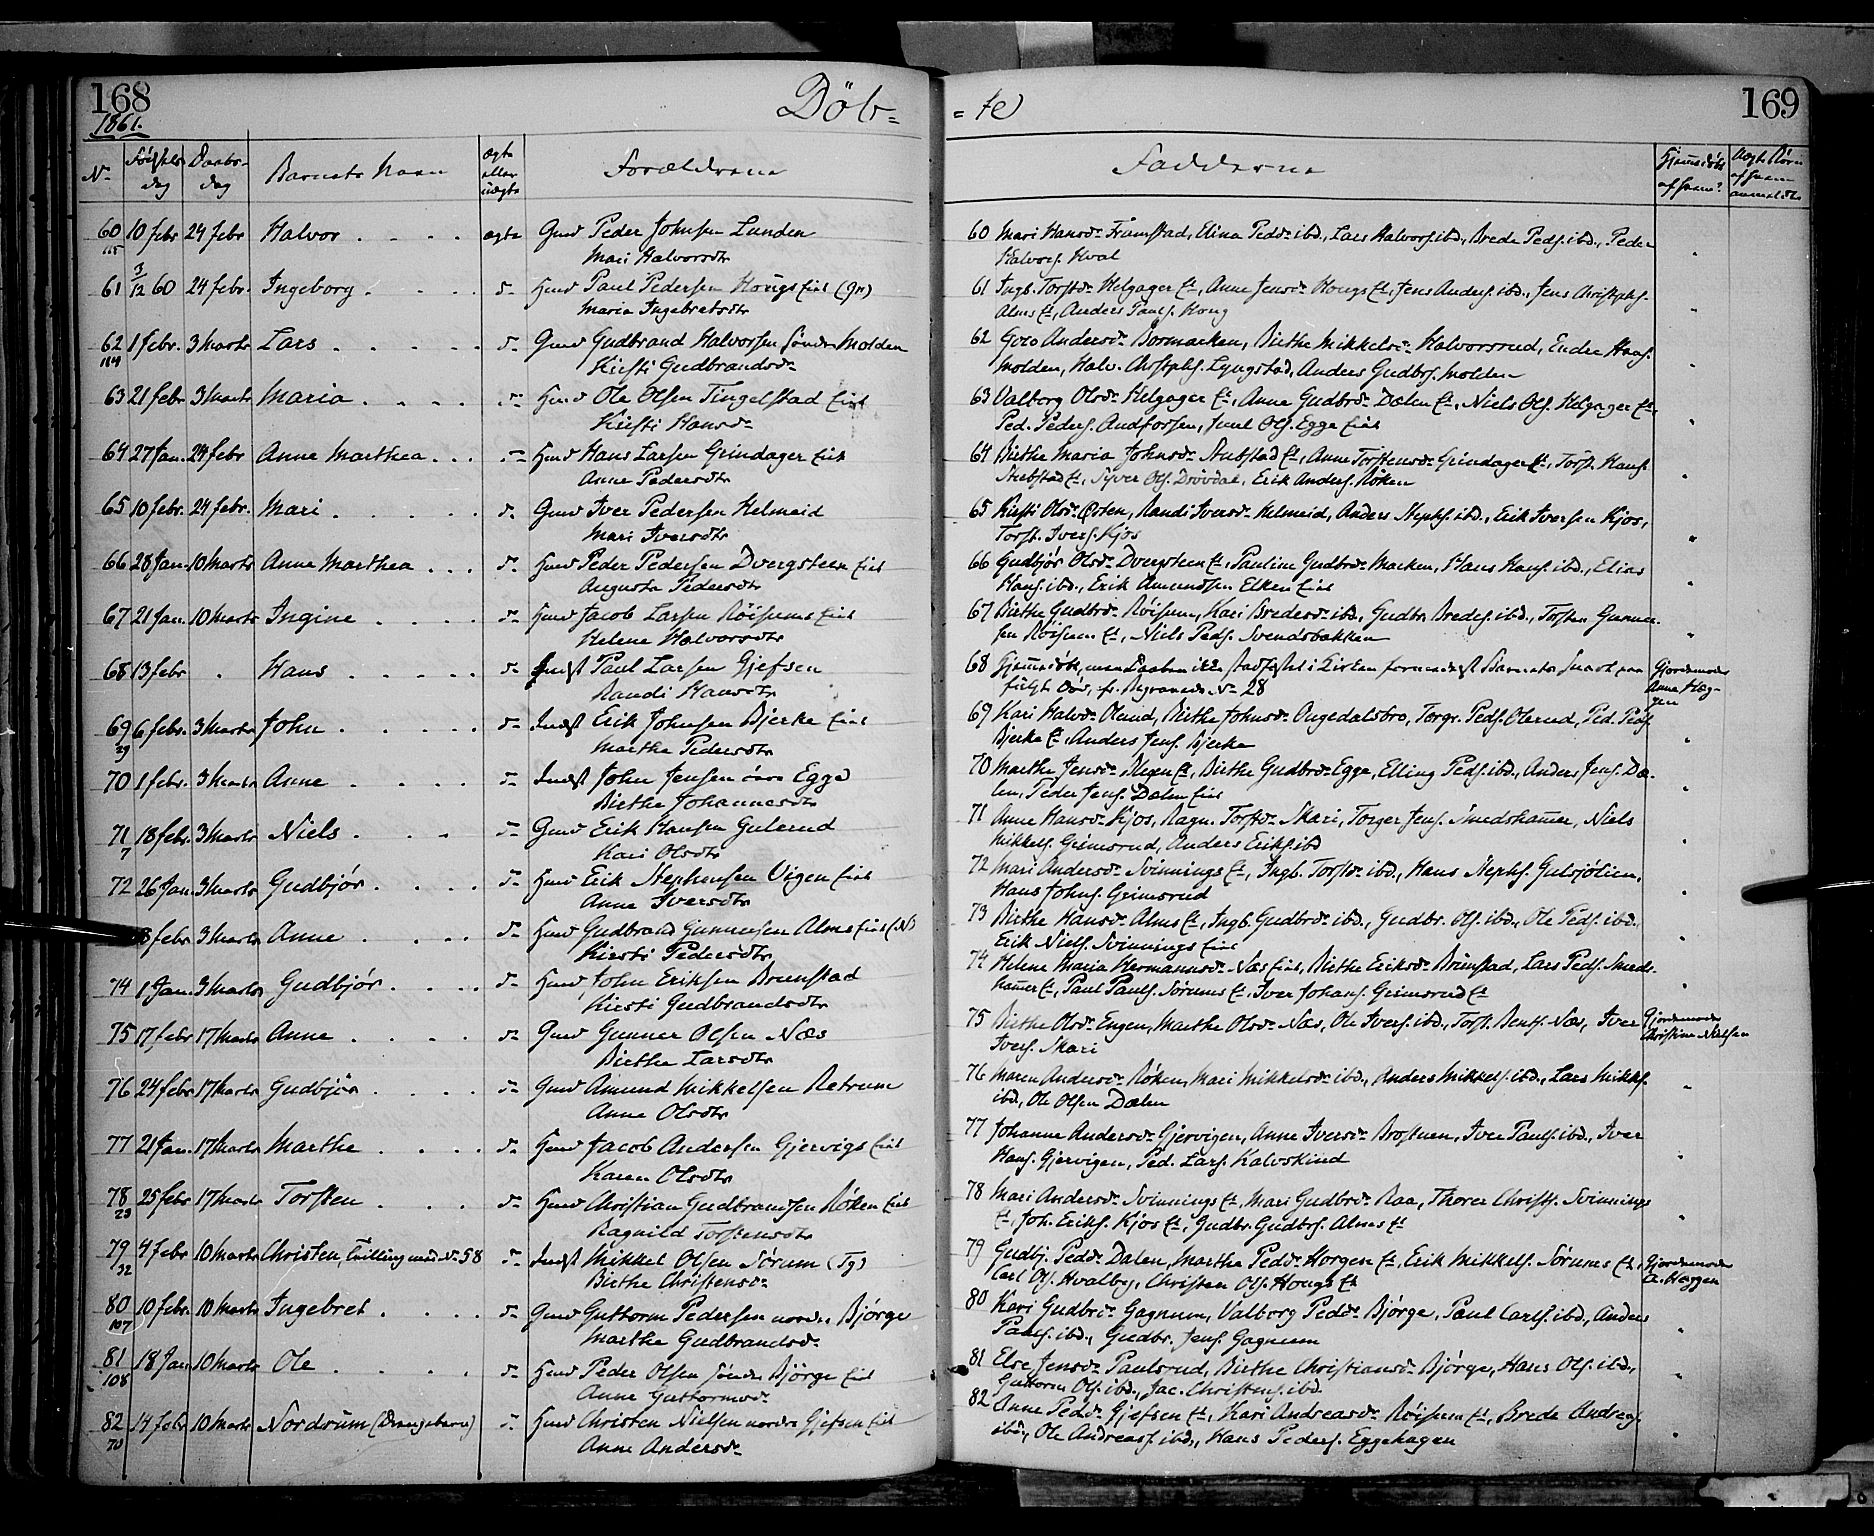 168
1861.
Döb=
No Fødsels dag Daabs dag Barnets Navn ægte eller uægte Forældrene
60 10 febr 24 febr Halvor ægte Gmd Peder Johnsen Lunden
Mari Halvorsdtr
61 3/12 60 24 febr. Ingeborg Hmd Paul Pedersen Hougs Eie (Gn)
Maria Ingebretsdtr
62 1 febr. 3 Marts Lars Gmd Gudbrand Halvorsen Søndre Molden
184 Kirsti Gudbrandsd.
63 21 febr 3 Marts Maria Hmd Ole Olsen Tingelstad Eie
Kirsti Hansd.
64 27 Jan. 24 febr Anne Marthea Hmd Hans Larsen Grindager Eie
Anne Pedersdtr
65 10 febr. 24 febr. Mari Gmd Iver Pedersen Helmeid
Mari Iversdtr
66 28 Jan. 10 Marts Anne Marthea Hmd Peder Pedersen Dvergsteen Eie
Augusta Pedersdtr
67 21 Jan. 10 Marts Ingine Hmd Jacob Larsen Røisums Eie
Helene Halvorsdtr
68 13 febr Hans Indst Paul Larsen Gjefsen
Randi Hansdtr
69 6 febr. 3 Marts John Indst Erik Johnsen Bjerke Eie
29 Marthe Pedersdtr
70 1 febr. 3 Marts Anne Indst John Jensen övre Egge
Birthe Johannesdtr
71 18 febr. 3 Marts Niels Gmd Erik Hansen Gulerud
7 Kari Olsdtr
72 26 Jan. 3 Marts Gudbjør Hmd Erik Stephensen Vigen Eie
Anne Iversdtr
8 febr 3 Marts Anne Hmd Gudbrand Gunnersen Alms Eie (N)
Kirsti Pedersdtr
74 1 Jan. 3 Marts Gudbjør Hmd John Eriksen Brunstad
Kirsti Gudbrandsdtr
75 17 febr 17 Marts Anne Gmd Gunner Olsen Næs
Birthe Larsdtr
76 24 febr 17 Marts Gudbjør Gmd Amund Mikkelsen Retrum
Anne Olsdtr
77 21 Jan. 17 Marts Marthe Hmd Jacob Andersen Gjervigs Eie
Karen Olsdtr
78 25 febr 17 Marts Torsten Hmd Christian Gudbrandsen Røken Eie
23 Ragnild Torstensdtr
79 4 febr 10 Marts Christen, Tvilling med No 58 Indst Mikkel Olsen Sørum (Tg)
32 Birthe Christensd.
80 10 febr. 10 Marts Ingebret Gmd Guttorm Pedersen nordre Bjørge
107 Marthe Gudbrandsd.
81 18 Jan 10 Marts Ole Hmd Peder Olsen Søndre Bjørge Eie
108 Anne Guttormsd.
82 14 febr 10 Marts Nordrum (Drengebarn) Hmd Christen Nielsen nordre Gjefsen Eie
70 Anne Andersd.
169
=te
Fadderne Hjemmedøbt af hvem?
60 Mari Hansd. Framstad, Elina Pedd. ibd., Lars Halvors. ibd., Brede Peds. ibd., Peder
Halvors. Hval
61 Ingb. Torstd. Helgager E., Anne Jensd. Hougs E., Jens Anders. ibd., Jens Christphs.
Alms E., Anders Pauls. Houg
62 Goro Andersd. Bormarken, Birthe Mikkelsd. Halvorsrud, Endre Hans.
Molden, Halv. Chrstphs. Lyngstad, Anders Gudbrs. Molden
63 Valborg Olsd. Helgager E., Anne Gudbrd. Dælen E., Niels Ols. Helgager E.
Ped. Peders. Andfossen, Juul Ols. Egge Eie
64 Birthe Maria Johnsd. Stubstad E., Anne Torstensd. Grindager E., Torst. Hans.
Stubstad E., Syver Ols. Drövdal, Erik Anders. Røken
65 Kirsti Olsd. Østen, Randi Iversd. Helmeid, Anders Stephs. ibd., Erik Iversen Kjos,
Torst. Ivers. Kjos
66 Gudbjør Olsd. Dvergsteen E., Pauline Gudbrd. Marken, Hans Hans. ibd., Elias
Hans. ibd., Erik Amundsen Elken Eie
67 Birthe Gudbrd. Røisum, Kari Bredesd. ibd., Gudbr. Bredes. ibd., Torsten Gunner-
sen Røisum E., Niels Peds. Svendsbakken
68 Hjemmedøbt, men Daaben ikke stadfæstet i Kirken formedelst Barnets snart paa-
fulgte Død, fr. Begravede No 28 Gjordemoder
Anne Hæg-
gen
69 Kari Halvd. Olerud, Birthe Johnsd. Ongedalsbro, Torgr. Peds. Olerud, Ped. Peds.
Bjerke E., Anders Jens. Bjerke
70 Marthe Jensd. Vigen E., Birthe Gudbrd. Egge, Elling Peds. ibd., Anders Jens. Dæ-
len, Peder Jens. Dælen Eie
71 Anne Hansd. Kjos, Ragn. Torstd. Skari, Torger Jens. Smedshammer, Niels
Mikkels. Grimsrud, Anders Eriks. ibd
72 Mari Andersd. Svinnings E., Ingb. Torstd. ibd., Hans Stephs. Gulsjølien,
Hans Johns. Grimsrud
73 Birthe Hansd. Alms E., Ingb. Gudbrd. ibd., Gudbr. Ols. ibd., Ole Peds. ibd.,
Erik Niels. Svinnings Eie
74 Helene Maria Hermannsd. Næs Eie, Birthe Eriksd. Brunstad, Lars Peds. Smeds-
hammer E., Paul Pauls. Sørums E., Iver Johans. Grimsrud E.
75 Birthe Olsd. Engen, Marthe Olsd. Næs, Ole Ivers. ibd., Torst. Bents. Næs, Iver
Ivers. Skari Gjordemoder
Christine Nielsen
76 Maren Andersd. Røken, Mari Mikkelsd. ibd., Anders Mikkels. ibd., Lars Mikks.
ibd., Ole Olsen Dælen
77 Johanne Andersd. Gjervigen, Anne Iversd. Brostuen, Iver Pauls. ibd., Iver
Hans. Gjervigen, Ped. Lars. Kalvskind
78 Mari Andersd. Svinnings E., Mari Gudbrd. Raa, Thorer Christs. Svinnings
E., Joh. Eriks. Kjos E., Gudbr. Gudbrs. Alms E.
79 Gudbj. Pedd. Dalen, Marthe Pedd. Horgen E., Erik Mikkels. Sørums E.,
Carl Ols. Hvalby, Christen Ols. Hougs E. Gjordemoder
A. Hæggen
80 Kari Gudbrd. Gagnum, Valborg Pedd. Bjørge, Paul Carls. ibd., Anders
Pauls. ibd., Gudbr. Jens. Gagnum
81 Else Jensd. Paulsrud, Birthe Christiansd. Bjørge, Hans Ols. ibd.,
Guttorm Ols. ibd., Jac. Christens. ibd.
82 Anne Pedd. Gjefsen E., Kari Andreasd. Røisum E., Brede Andreas.
ibd., Ole Andreas. ibd., Hans Peders. Eggehagen